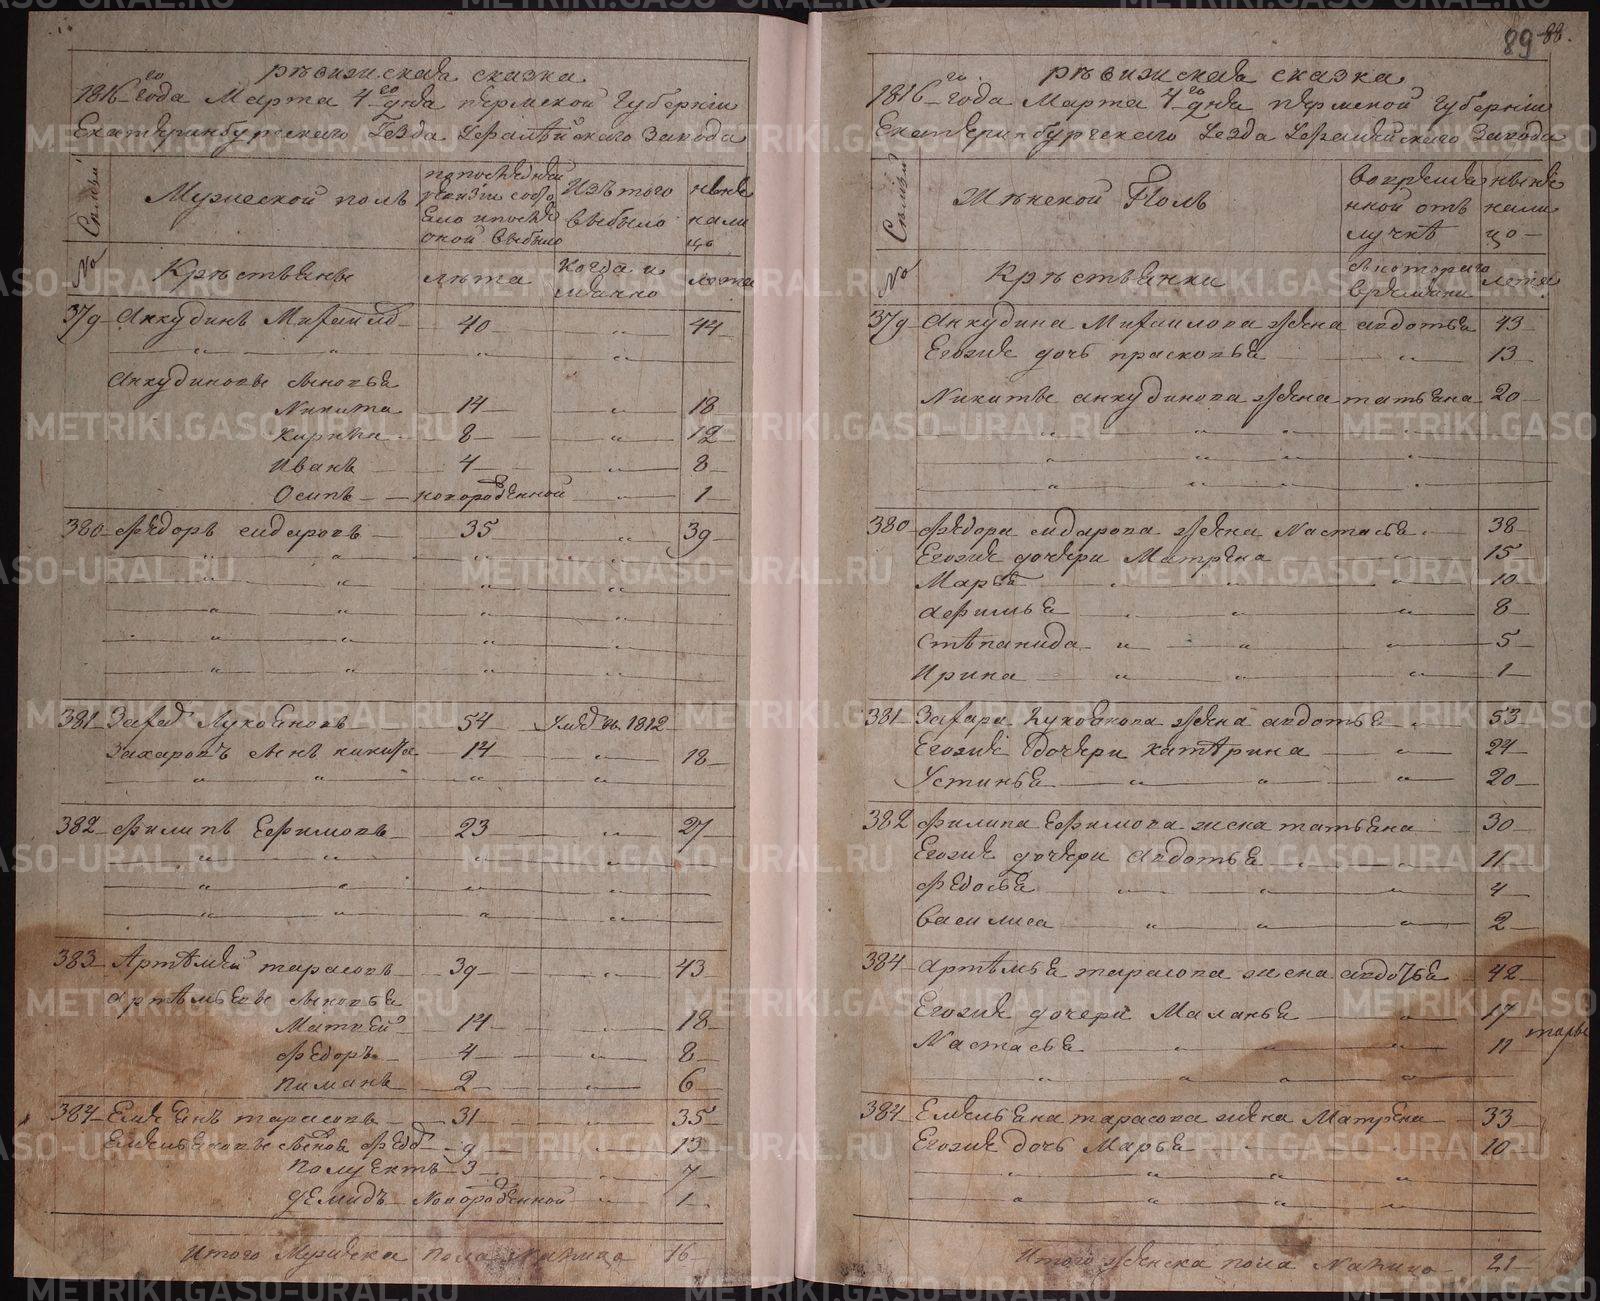 рѣвижская сказка
1816 го года Марта 4 го дня пермской губерніи
Екатеринбургскаго уезда Уфалѣйскаго завода
Семьи
Мужеской полъ
по последней ревизіи состояло и после оной выбыло
Изъ того выбыло
ныне на лицо
№
Крѣстьяне
лѣта
когда и
лета
379 Анкудинъ Михайло 40 " 44
" " " "
Анкудиновы сыновья
Никита 14 " 18
8 " 12
Иванъ 4 " 8
Осипъ новорожденной " 1
380 Федоръ сидаровъ 35 " 39
" " " "
" " " "
" " " "
" " " "
" " " "
381 Захаръ Лукояновъ 54 Умѣ въ 1812
Захаровъ сынъ никита 14 " 18
" " " "
382 Филипъ Ефимовъ 23 " 27
" " " "
" " " "
" " " "
383 Артѣмей тарасовъ 39 " 43
артѣмьевы сыновья
Матвей 14 " 18
федоръ 4 " 8
Пиманъ 2 " 6
384 Емельянъ тарасовъ 31 " 35
Емельяновы сыновья федо 9 " 13
Полуектъ 3 " 7
демидъ Новорожденной " 1
Итого Мужеска пола Налицо 16
89 88.
рѣвижская сказка
1816 го года Марта 4 го дня пермской губерніи
Екатеринбургскаго уезда Уфалейскаго завода
Семьи
Жѣнской Полъ
во времянной отъ лучкѣ
ныне на лицо
№
Крѣстьянки
с котораго времяни
лета
379 Анкудина Михаилова жена авдотья 43
Егожъ дочь прасковья " 13
Никиты анкудинова жена татьяна 20
" " " "
" " " "
" " " "
380 Федора сидарова жена Настасья 38
Егоже дочери Матрена " 15
Марья " " " 10
Афимья " " " 8
Стѣпанида " " " 5
Ирина " " " 1
381 Захара Лукоянова жена авдотья " 53
Егоже дочери катѣрина " 24
Устинья " " " 20
382 Филипа Ефимова жена татьяна 30
Егоже дочери авдотья " " 11
Федосья " " " 4
Василиса " " " 2
384 артѣмья тарасова жена авдотья 42
Егоже дочери Маланья " 17
Настасья " " " 11
" " " " "
384 Емельяна тарасова жена Матрена 33
Егоже дочь Марья " " 10
" " " "
" " " "
Итого женска пола Налицо 21
METRIKI.GASO-URAL.RU